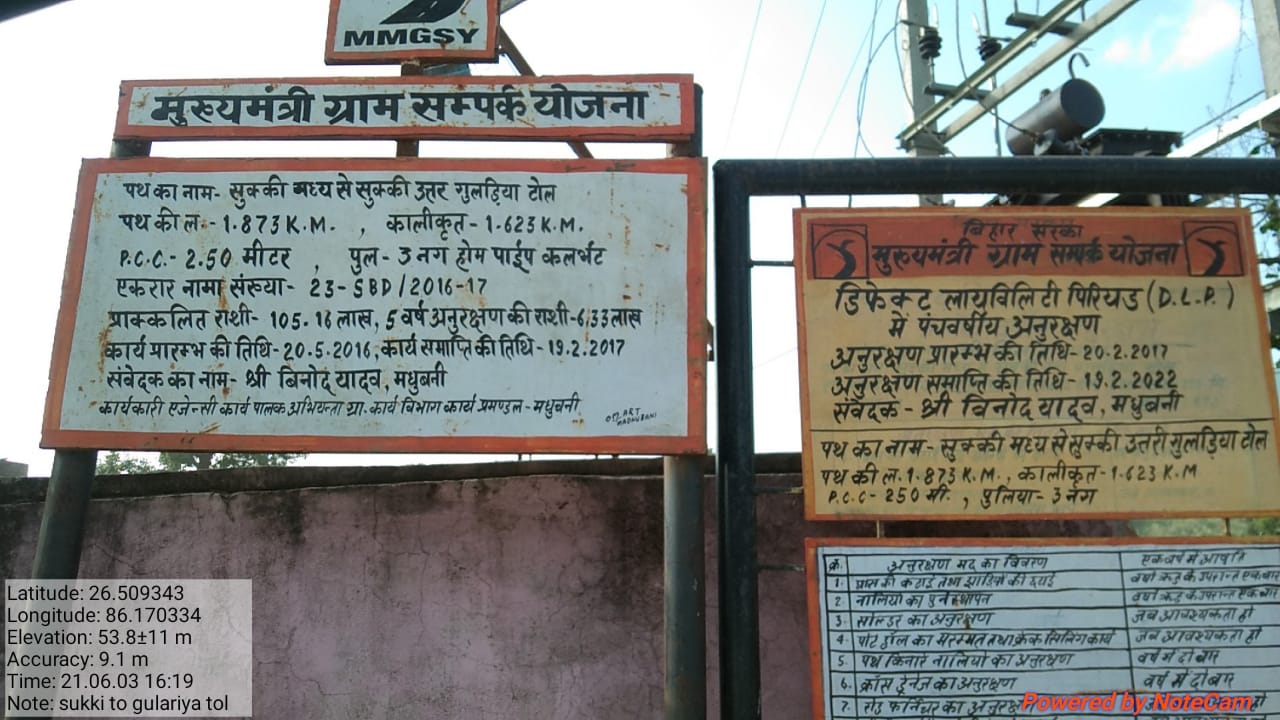 MMGSY
मुख्यमंत्री ग्राम सम्पर्क योजना
पथ का नाम- सुक्की मध्य से सुक्की उत्तर गुलड़िया टोल
पथ की ल.- 1.873 K.M. , कालीकृत- 1.623 K.M.
P.C.C.- 2.50 मीटर , पुल- 3 नग होम पाईप कलर्भट
एकरार नामा संख्या- 23-SBD/2016-17
प्राक्कलित राशी- 105.16 लाख, 5 वर्ष अनुरक्षण की राशी-6.33 लाख
कार्य प्रारम्भ की तिथि-20.5.2016, कार्य समाप्ति की तिथि-19.2.2017
संवेदक का नाम- श्री बिनोद यादव, मधुबनी
कार्यकारी एजेन्सी कार्य पालक अभियन्ता ग्रा. कार्य विभाग कार्य प्रमण्डल - मधुबनी.
ART
MADHUBANI
बिहार सरका
मुख्यमंत्री ग्राम सम्पर्क योजना
डिफेक्ट लायविलिटी पिरियड (D.L.P.)
में पंचवर्षीय अनुरक्षण
अनुरक्षण प्रारम्भ की तिथि- 20.2.2017
अनुरक्षण समाप्ति की तिथि - 19.2.2022
संवेदक - श्री विनोद यादव, मधुबनी
पथ का नाम- सुक्की मध्य से सुक्की उत्तरी गुलड़िया टोल
पथ की ल. 1.873 K.M., कालीकृत-1.623 K.M
P.C.C- 250 मी. , पुलिया- 3 नग
क्र. अनुरक्षण मद का विवरण एक वर्ष में आवृति
1. घास की कटाई तथा झाड़ियों की छटाई वर्षा ऋतु के उपरान्त एक बार
2. नालियों का पुर्नस्थापन वर्षा ऋतु के उपरान्त एक बार
3. सोल्डर का अनुरक्षण जब आवश्यकता हो
4. पोट हॉल का मरम्मत तथा क्रेक सिलिंग कार्य जब आवश्यकता हो
5. पथ किनारे नालियों का अनुरक्षण वर्ष में दो बार
6. क्रॉस ड्रेनेज का अनुरक्षण वर्ष में दो बार
7. रोड फर्निचर का अनुरक्षण
Latitude: 26.509343
Longitude: 86.170334
Elevation: 53.8±11 m
Accuracy: 9.1 m
Time: 21.06.03 16:19
Note: sukki to gulariya tol
Powered by NoteCam